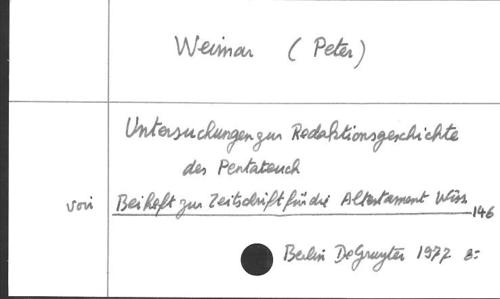 Weimar (Peter)
Untersuchungen zur Redaktionsgeschichte
des Pentateuch
voir Beiheft zur Zeitschrift für die Altestament Wiss 146
Berlin DeGruyter 1977 8=